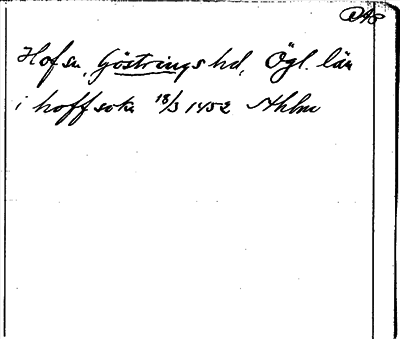 Hof sn, Göstrings hd, Ögl. län
i hoff sokn 18/3 1452 Ahlm